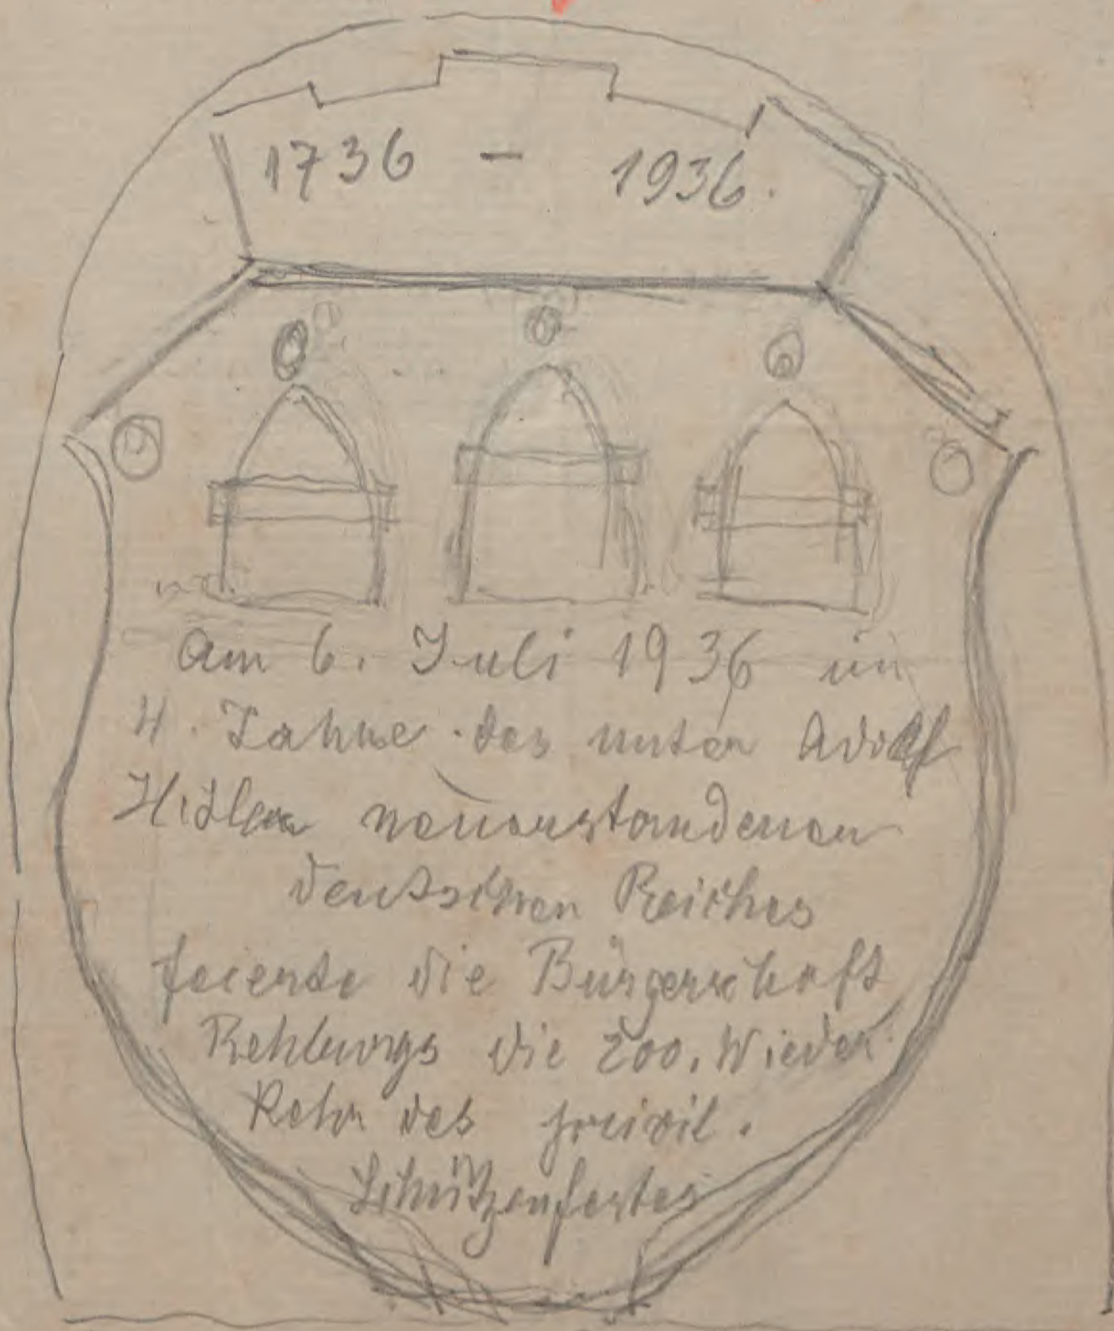 1736 - 1936.
Am 6. Juli 1936 im
4. Jahre des unter Adolf
Hitler neuerstandenen
deutschen Reiches
feierte die Bürgerschaft
Rehburgs die 200. Wieder-
kehr des privil.
Schützenfestes